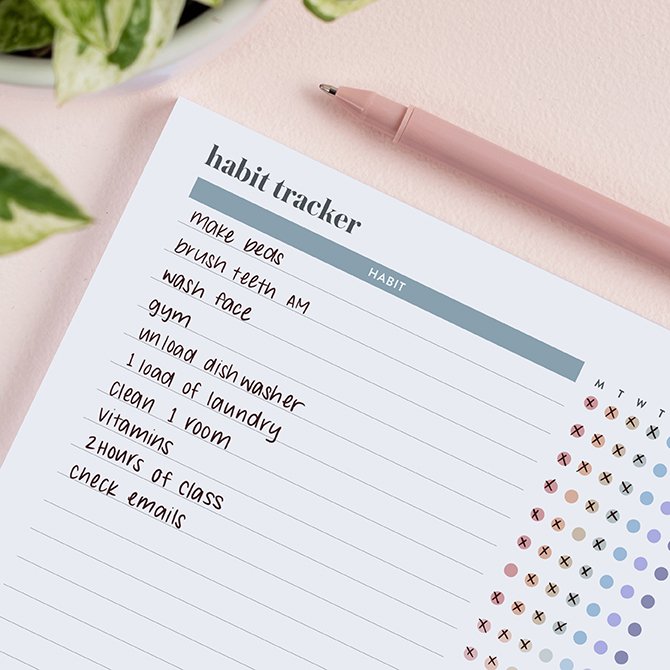 habit tracker
HABIT
M T W T
make beds
brush teeth AM
wash face
gym
unload dishwasher
1 load of laundry
clean 1 room
vitamins
2Hours of class
check emails